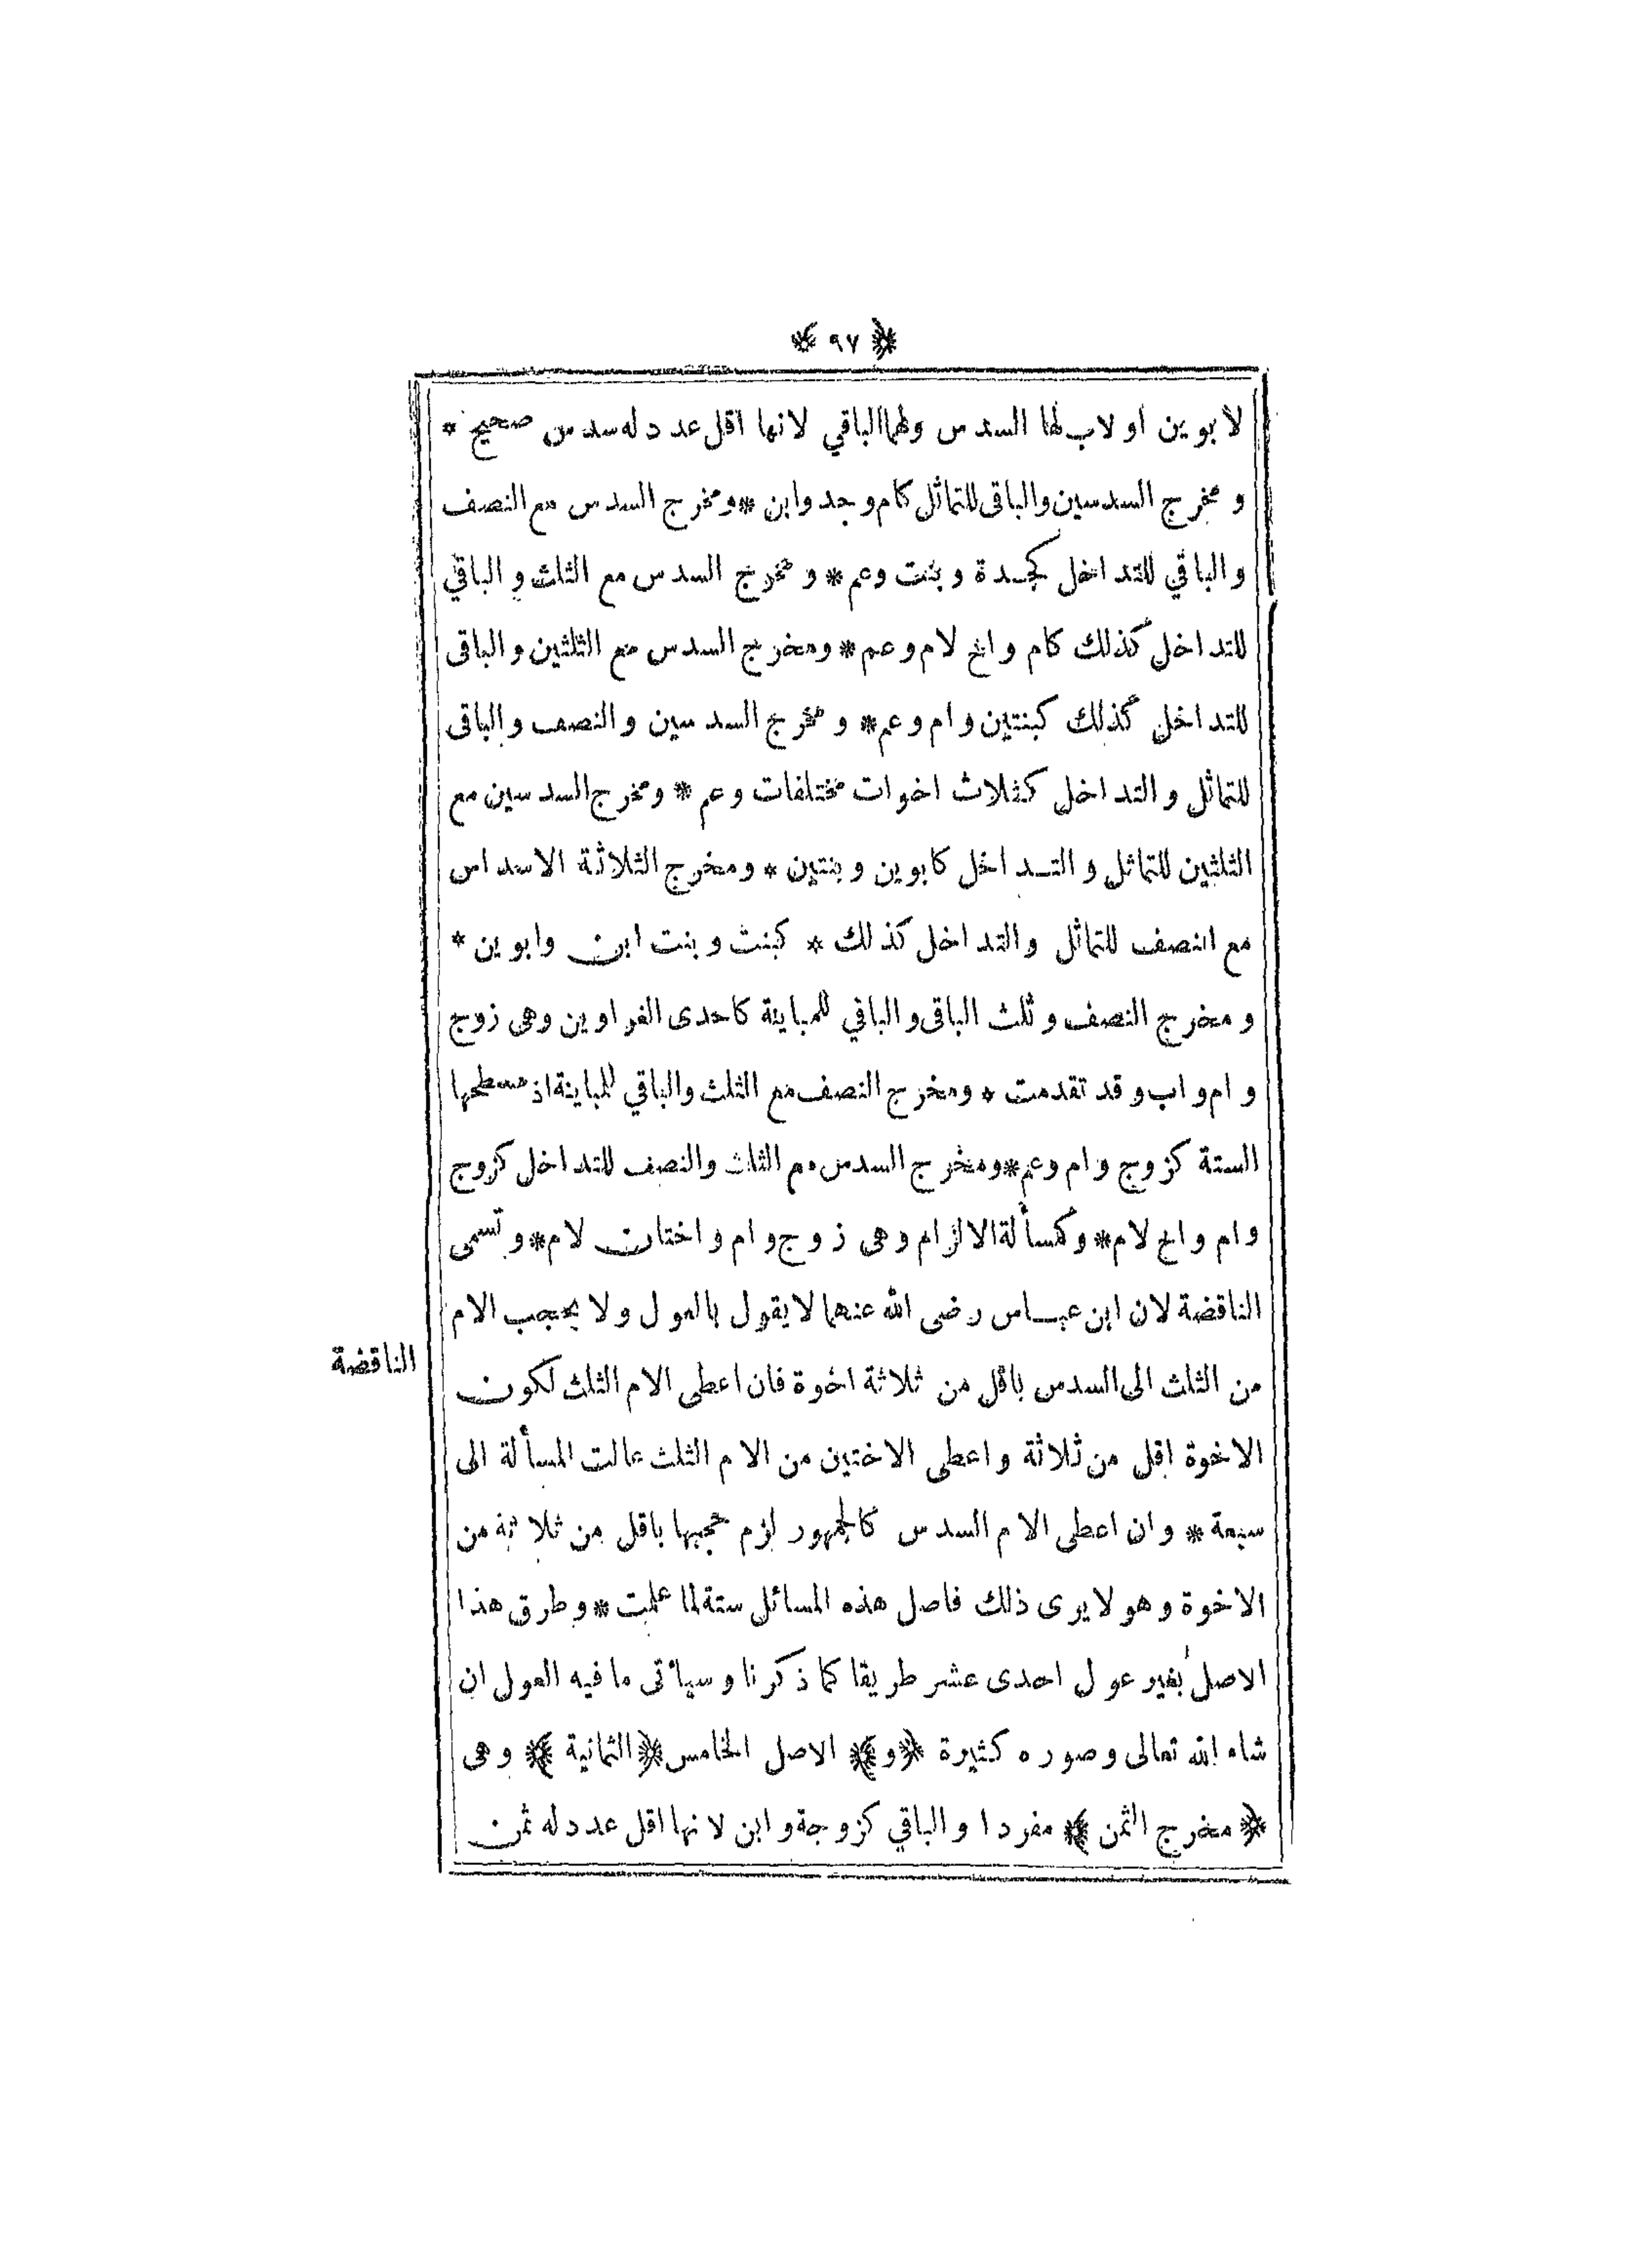 ﴿ ٩٧ ﴾
لابوين او لاب لها السدس ولهما الباقي لانها اقل عدد له سدس صحيح *
و مخرج السدسين والباقى للتماثل كام وجد وابن * ومخرج السدس مع النصف
والباقي للتداخل كجدة وبنت وعم * و مخرج السدس مع الثلث و الباقي
للتداخل كذلك كام واخ لام وعم * ومخرج السدس مع الثلثين و الباقى
للتداخل كذلك كبنتين و ام و عم * و مخرج السدسين و النصف و الباقى
للتماثل و التداخل كثلاث اخوات مختلفات وعم * ومخرج السدسين مع
الثلثين للتماثل و التداخل كابوين و بنتين * ومخرج الثلاثة الاسداس
مع النصف للتماثل والتداخل كذلك * كبنت وبنت ابن وابوين *
و مخرج النصف و ثلث الباقى و الباقي للمباينة كاحدى الغراوين وهى زوج
و ام و اب و قد تقدمت * ومخرج النصف مع الثلث والباقي للمباينة اذ مسطحها
الستة كزوج وام وعم * ومخرج السدس مع الثلث والنصف للتداخل كزوج
وام واخ لام * وكمسألة الالزام وهى زوج وام واختان لام * و تسمى
الناقضة لان ابن عباس رضى الله عنهما لا يقول بالعول ولا يحجب الام
الناقضة
من الثلث الى السدس باقل من ثلاثة اخوة فان اعطى الام الثلث لكون
الاخوة اقل من ثلاثة واعطى الاختين من الام الثلث عالت المسألة الى
سبعة * وان اعطى الام السدس كالجمهور لزم حجبها باقل من ثلاثة من
الاخوة وهو لا يرى ذلك فاصل هذه المسائل ستة لما علمت * وطرق هذا
الاصل بغير عول احدى عشر طريقا كما ذكرنا وسيأتى ما فيه العول ان
شاء الله تعالى وصوره كثيرة ﴿ و ﴾ الاصل الخامس ﴿ الثمانية ﴾ وهى
﴿ مخرج الثمن ﴾ مفردا والباقي كزوجة وابن لانها اقل عدد له ثمن